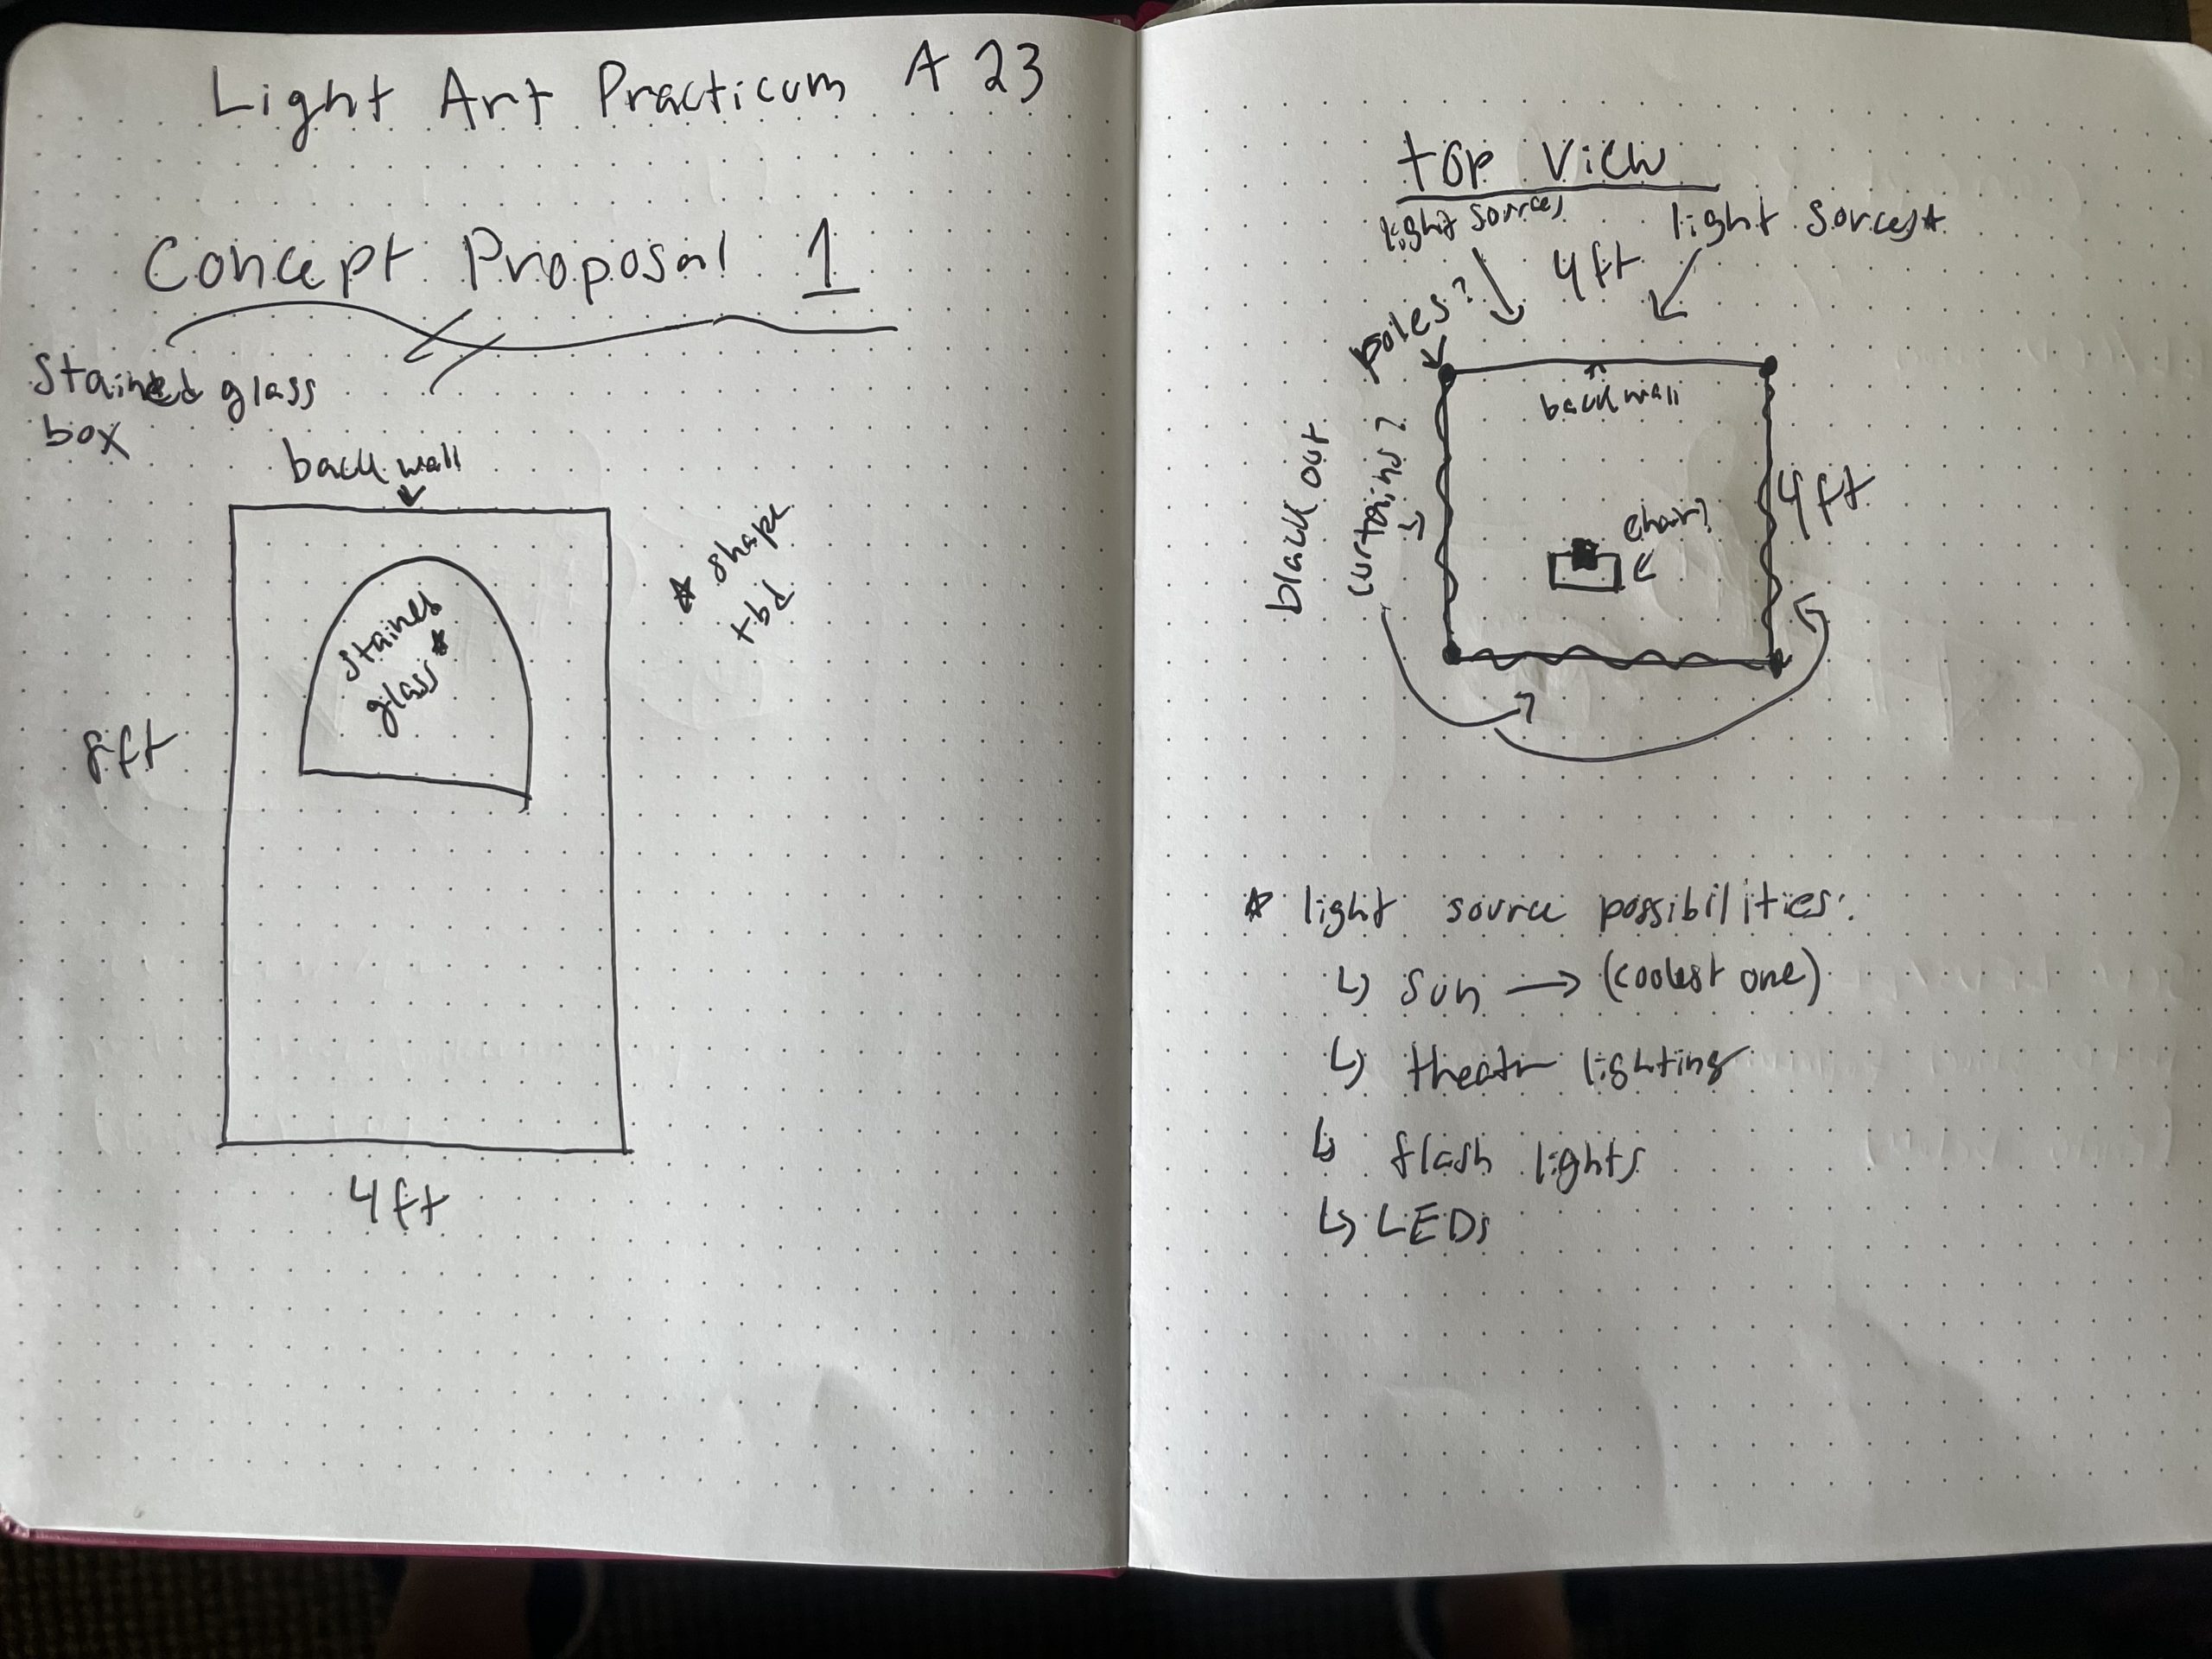 Light Art Practicum A 23
Concept Proposal 1
Stained glass
box
back wall
stained
glass*
* shape
tbd
8ft
4ft
top view
light sources
light sorces*
4ft
poles?
back wall
black out
curtains?
4ft
chair?
* light source possibilities:
↳ sun → (coolest one)
↳ theatr lighting
↳ flash lights
↳ LEDs